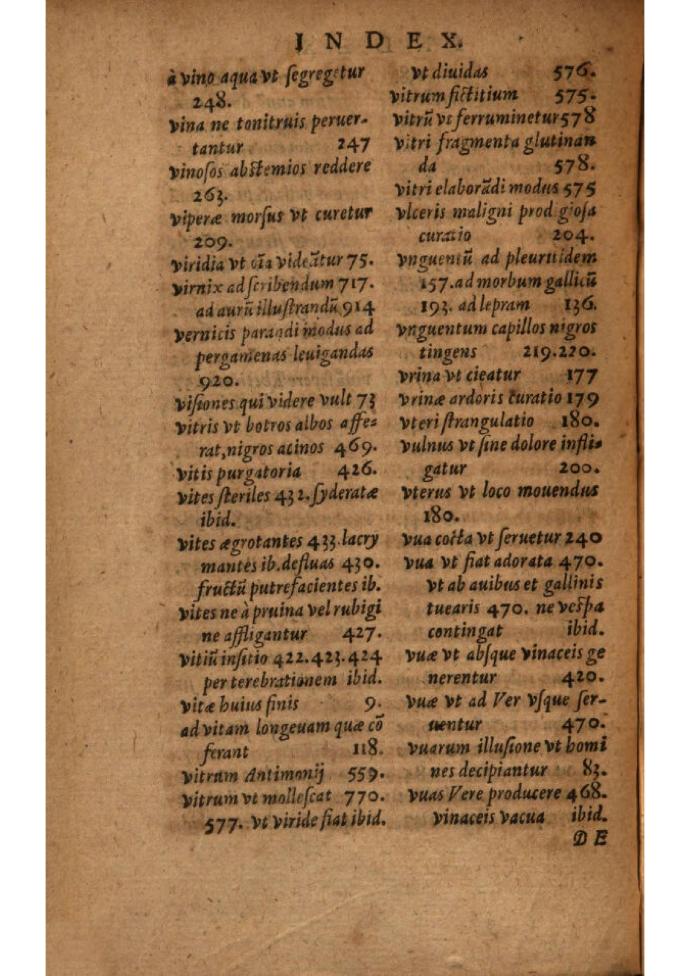 I N D E X.
à vino aqua vt ſegregetur
248.
vina ne tonitruis peruer-
tantur 247
vinoſos abſtemios reddere
263.
viperæ morſus vt curetur
209.
viridia vt oĩa videãtur 75.
virnix ad ſcribendum 717.
ad aurũ illuſtrandũ 914
vernicis parandi modus ad
pergamenas leuigandas
920.
viſiones qui videre vult 73
vitris vt botros albos affe-
rat, nigros acinos 469.
vitis purgatoria 426.
vites ſteriles 432. ſyderatæ
ibid.
vites ægrotantes 433. lacry
mantes ib. defluas 430.
fructũ putrefacientes ib.
vites ne à pruina vel rubigi
ne affligantur 427.
vitiũ inſitio 422.423.424
per terebrationem ibid.
vitæ huius finis 9.
ad vitam longeuam quæ cõ
ferant 118.
vitrum Antimonij 559.
vitrum vt molleſcat 770.
577. vt viride fiat ibid.
vt diuidas 576.
vitrum fictitium 575.
vitrũ vt ferruminetur 578
vitri fragmenta glutinan
da 578.
vitri elaborãdi modus 575
vlceris maligni prodigioſa
curatio 204.
vnguentũ ad pleuritidem
157. ad morbum gallicũ
193. ad lepram 136.
vnguentum capillos nigros
tingens 219.220.
vrina vt cieatur 177
vrinæ ardoris curatio 179
vteri ſtrangulatio 180.
vulnus vt ſine dolore infli-
gatur 200.
vterus vt loco mouendus
180.
vua cocta vt ſeruetur 240
vua vt fiat adorata 470.
vt ab auibus et gallinis
tuearis 470. ne veſpa
contingat ibid.
vuæ vt abſque vinaceis ge
nerentur 420.
vuæ vt ad Ver vſque ſer-
uentur 470.
vuarum illuſione vt homi
nes decipiantur 83.
vuas Vere producere 468.
vinaceis vacua ibid.
D E